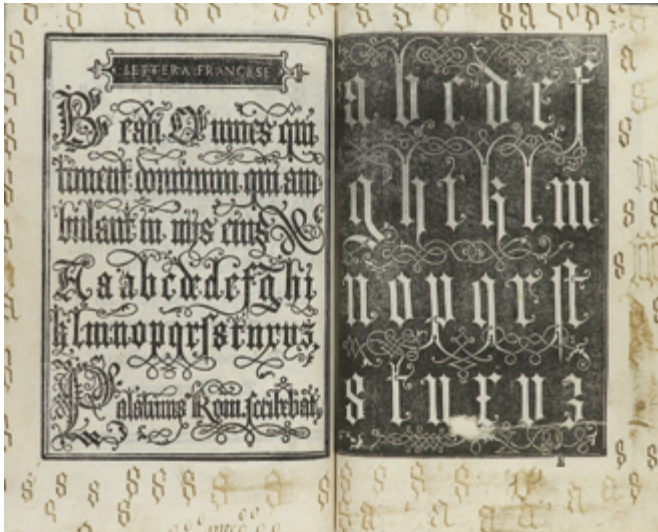 LETTERA FRANCESE
Beati Omnes qui
timent dominum qui am
bulant in vijs eius
A a a b c d e d e f g h i
k l m n o p q r ſ s t u x y z
Palatinus Rom. ſcribebat
a b c d e f
g h i k l m
n o p q r ſ t
s t u x y z